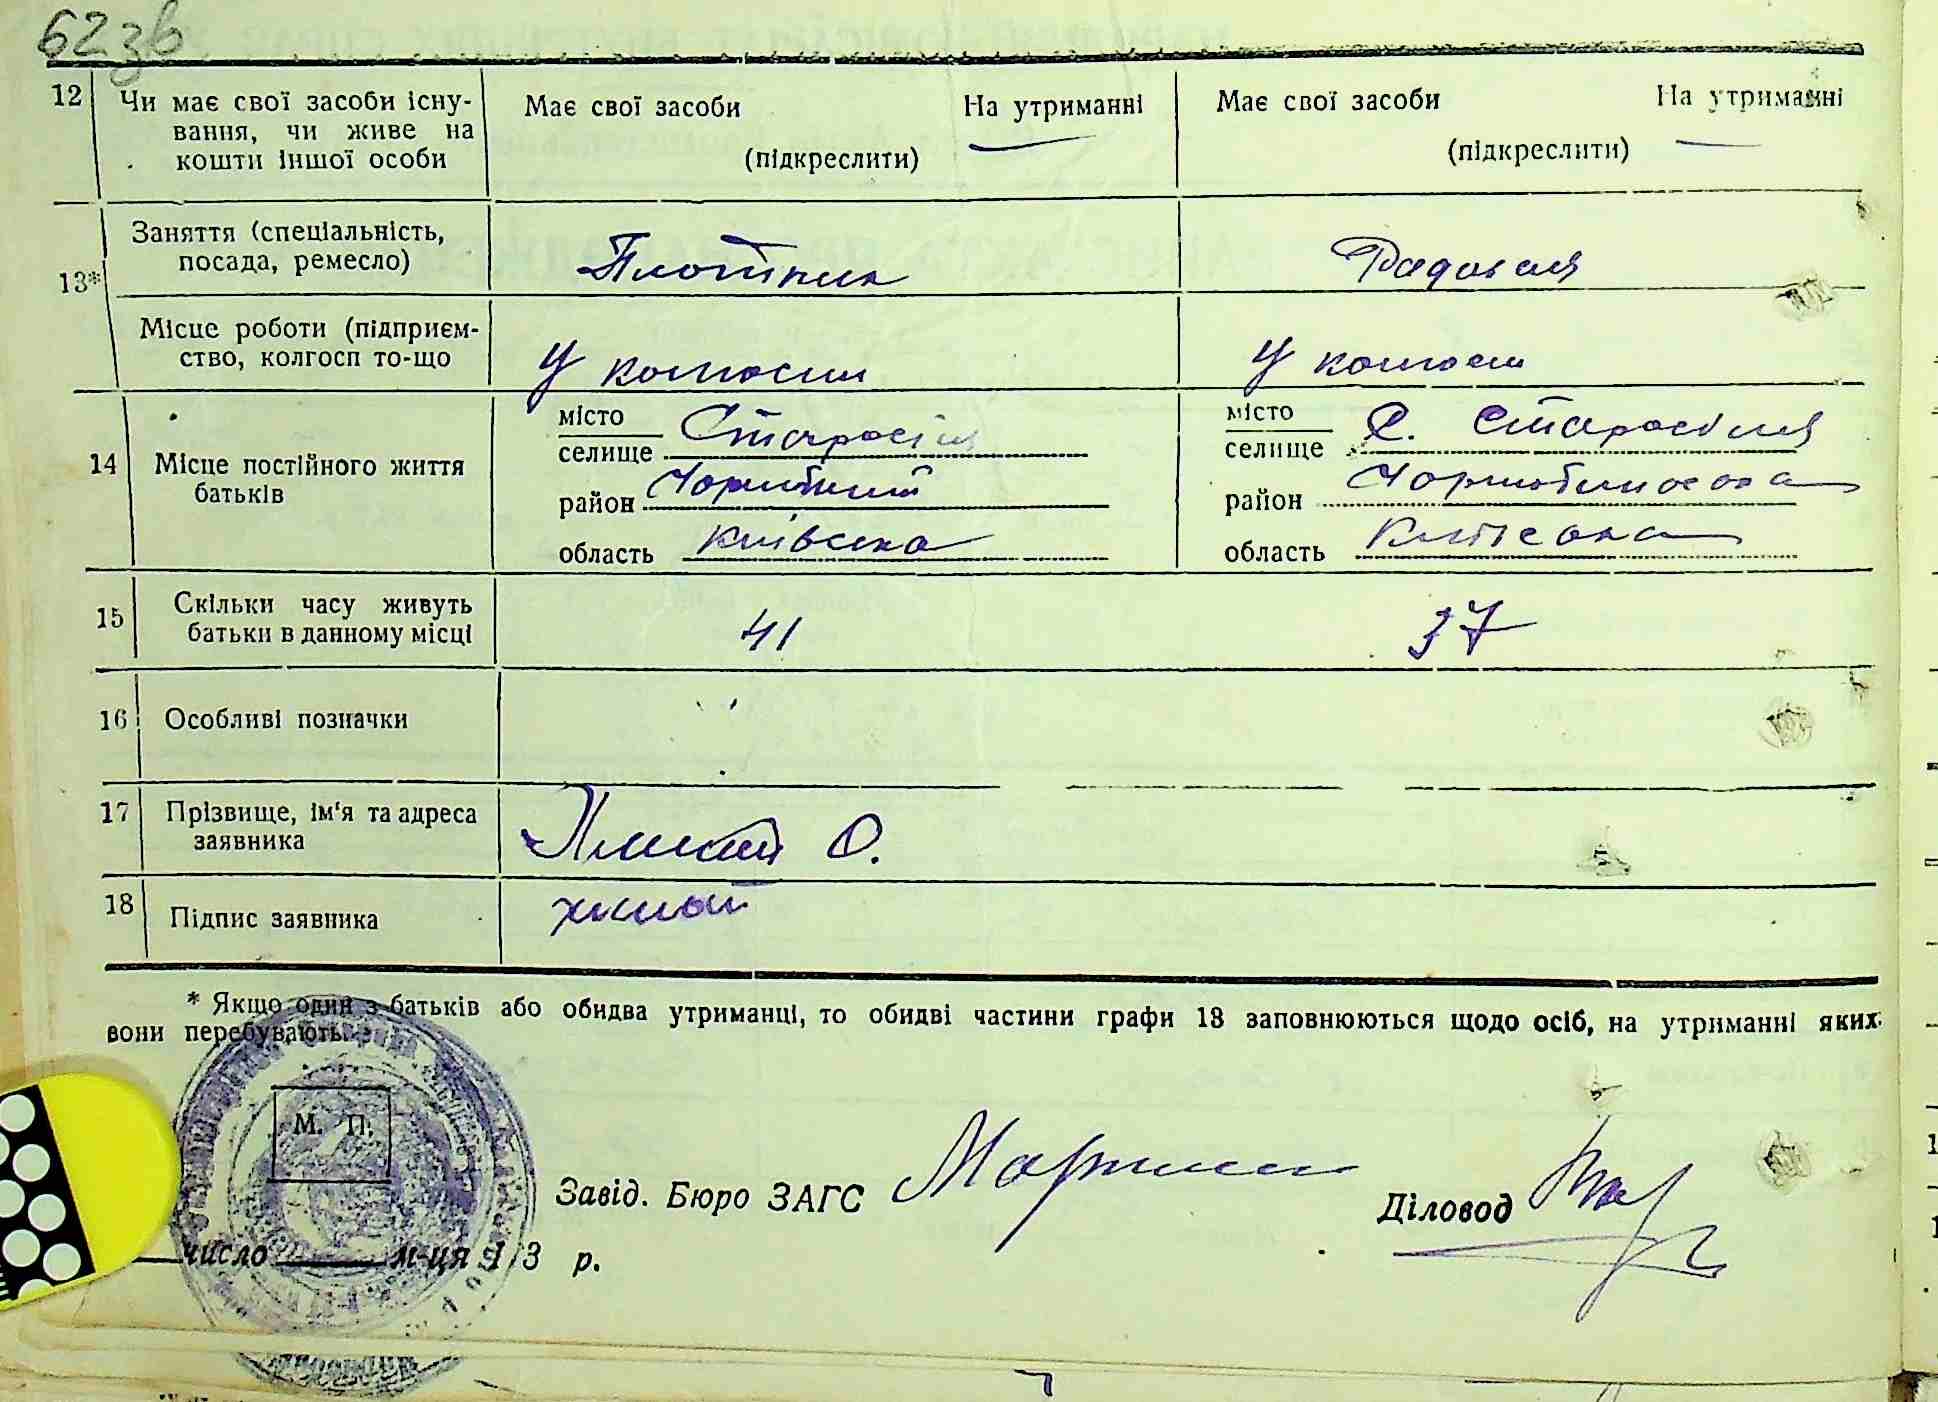 62зв
12 Чи має свої засоби існу-
вання, чи живе на
кошти іншої особи
Має свої засоби На утриманні
(підкреслити)
Має свої засоби На утриманні
(підкреслити)
13*
Заняття (спеціальність,
посада, ремесло)
Плотник
Рядовая
Місце роботи (підприєм-
ство, колгосп то-що
У колгоспі
У колгоспі
14 Місце постійного життя
батьків
місто
селище Старосілля
район
область Київська
місто
селище С. Старосілля
район
область Київська
15 Скільки часу живуть
батьки в данному місці
41
37
16 Особливі позначки
17 Прізвище, ім'я та адреса
заявника
О.
18 Підпис заявника
* Якщо один з батьків або обидва утриманці, то обидві частини графи 13 заповнюються щодо осіб, на утриманні яких
вони перебувають.
М. П.
Завід. Бюро ЗАГС
Діловод
число м-ця 193 р.